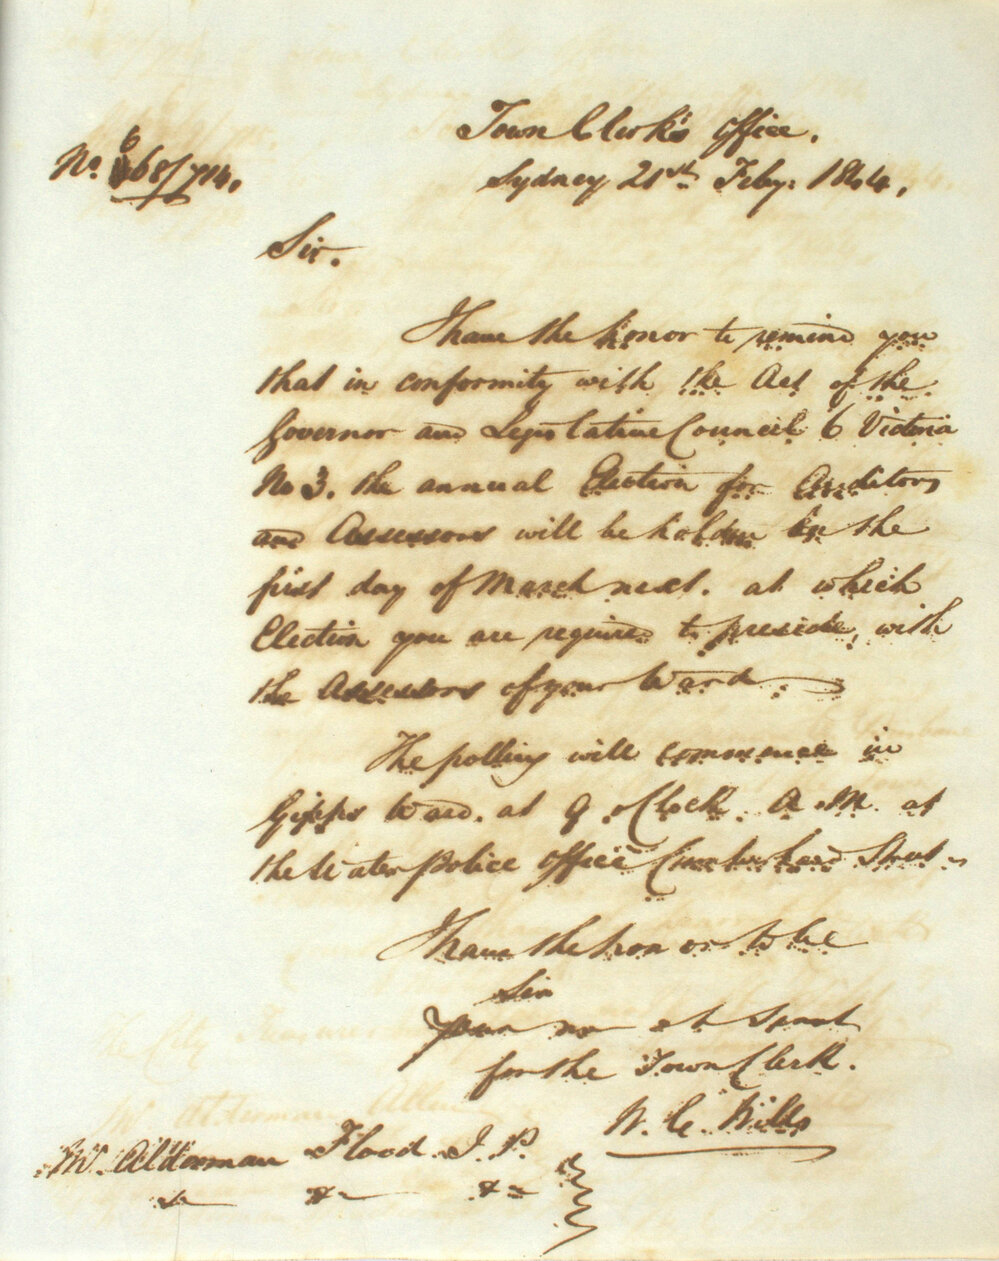 Town Clerk's Office.
No. 668/714.
Sydney 21st Feby: 1844.
Sir.
I have the honor to remind you
that in conformity with the Act of the
Governor and Legislative Council 6 Victoria
No 3. the annual Election for Auditors
and Assessors will be holden on the
first day of March next. at which
Election you are required to preside, with
the Assessors of your Ward.
The polling will commence in
Gipps Ward. at 9 oClock. A.M. at
the Water Police Office Cumberland Street
I have the honor to be
Sir
Your most obt Servt
for the Town Clerk.
W. C. Wills
Mr. Alderman Flood J. P.
&c &c &c